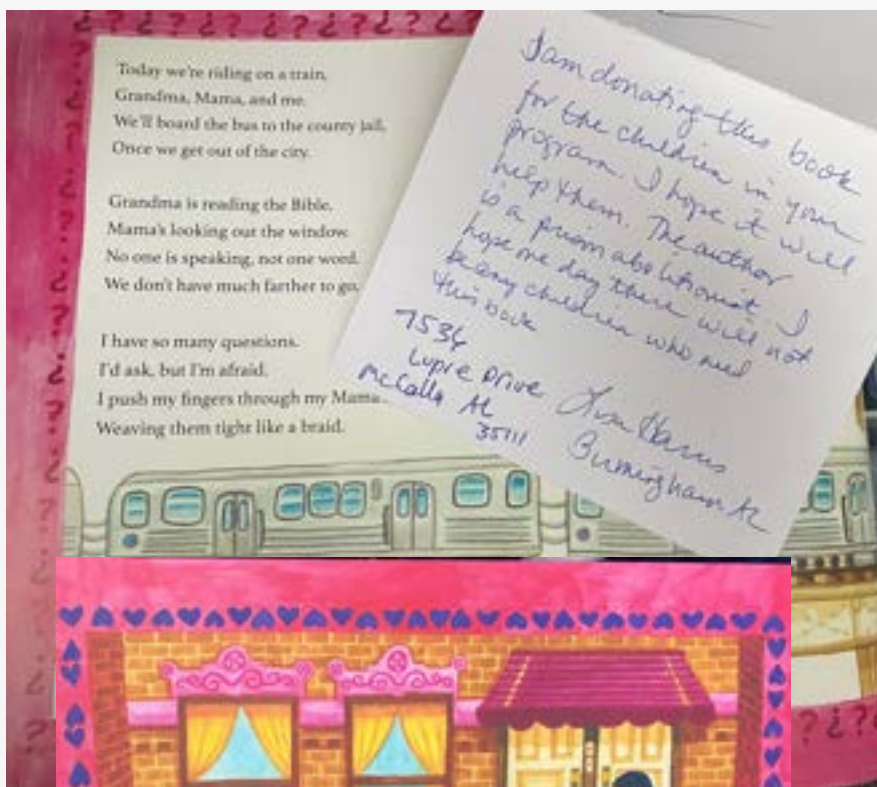 Today we're riding on a train,
Grandma, Mama, and me.
We'll board the bus to the county jail,
Once we get out of the city.
Grandma is reading the Bible.
Mama's looking out the window.
No one is speaking, not one word.
We don't have much farther to go.
I have so many questions.
I'd ask, but I'm afraid.
I push my fingers through my Mama
Weaving them tight like a braid.
I am donating this book
for the children in your
program. I hope it will
help them. The author
is a prison abolitionist. I
hope one day there will not
be any children who need
this book
7536
Lupre Drive
McCalla AL
35111
Lisa Harris
Birmingham AL